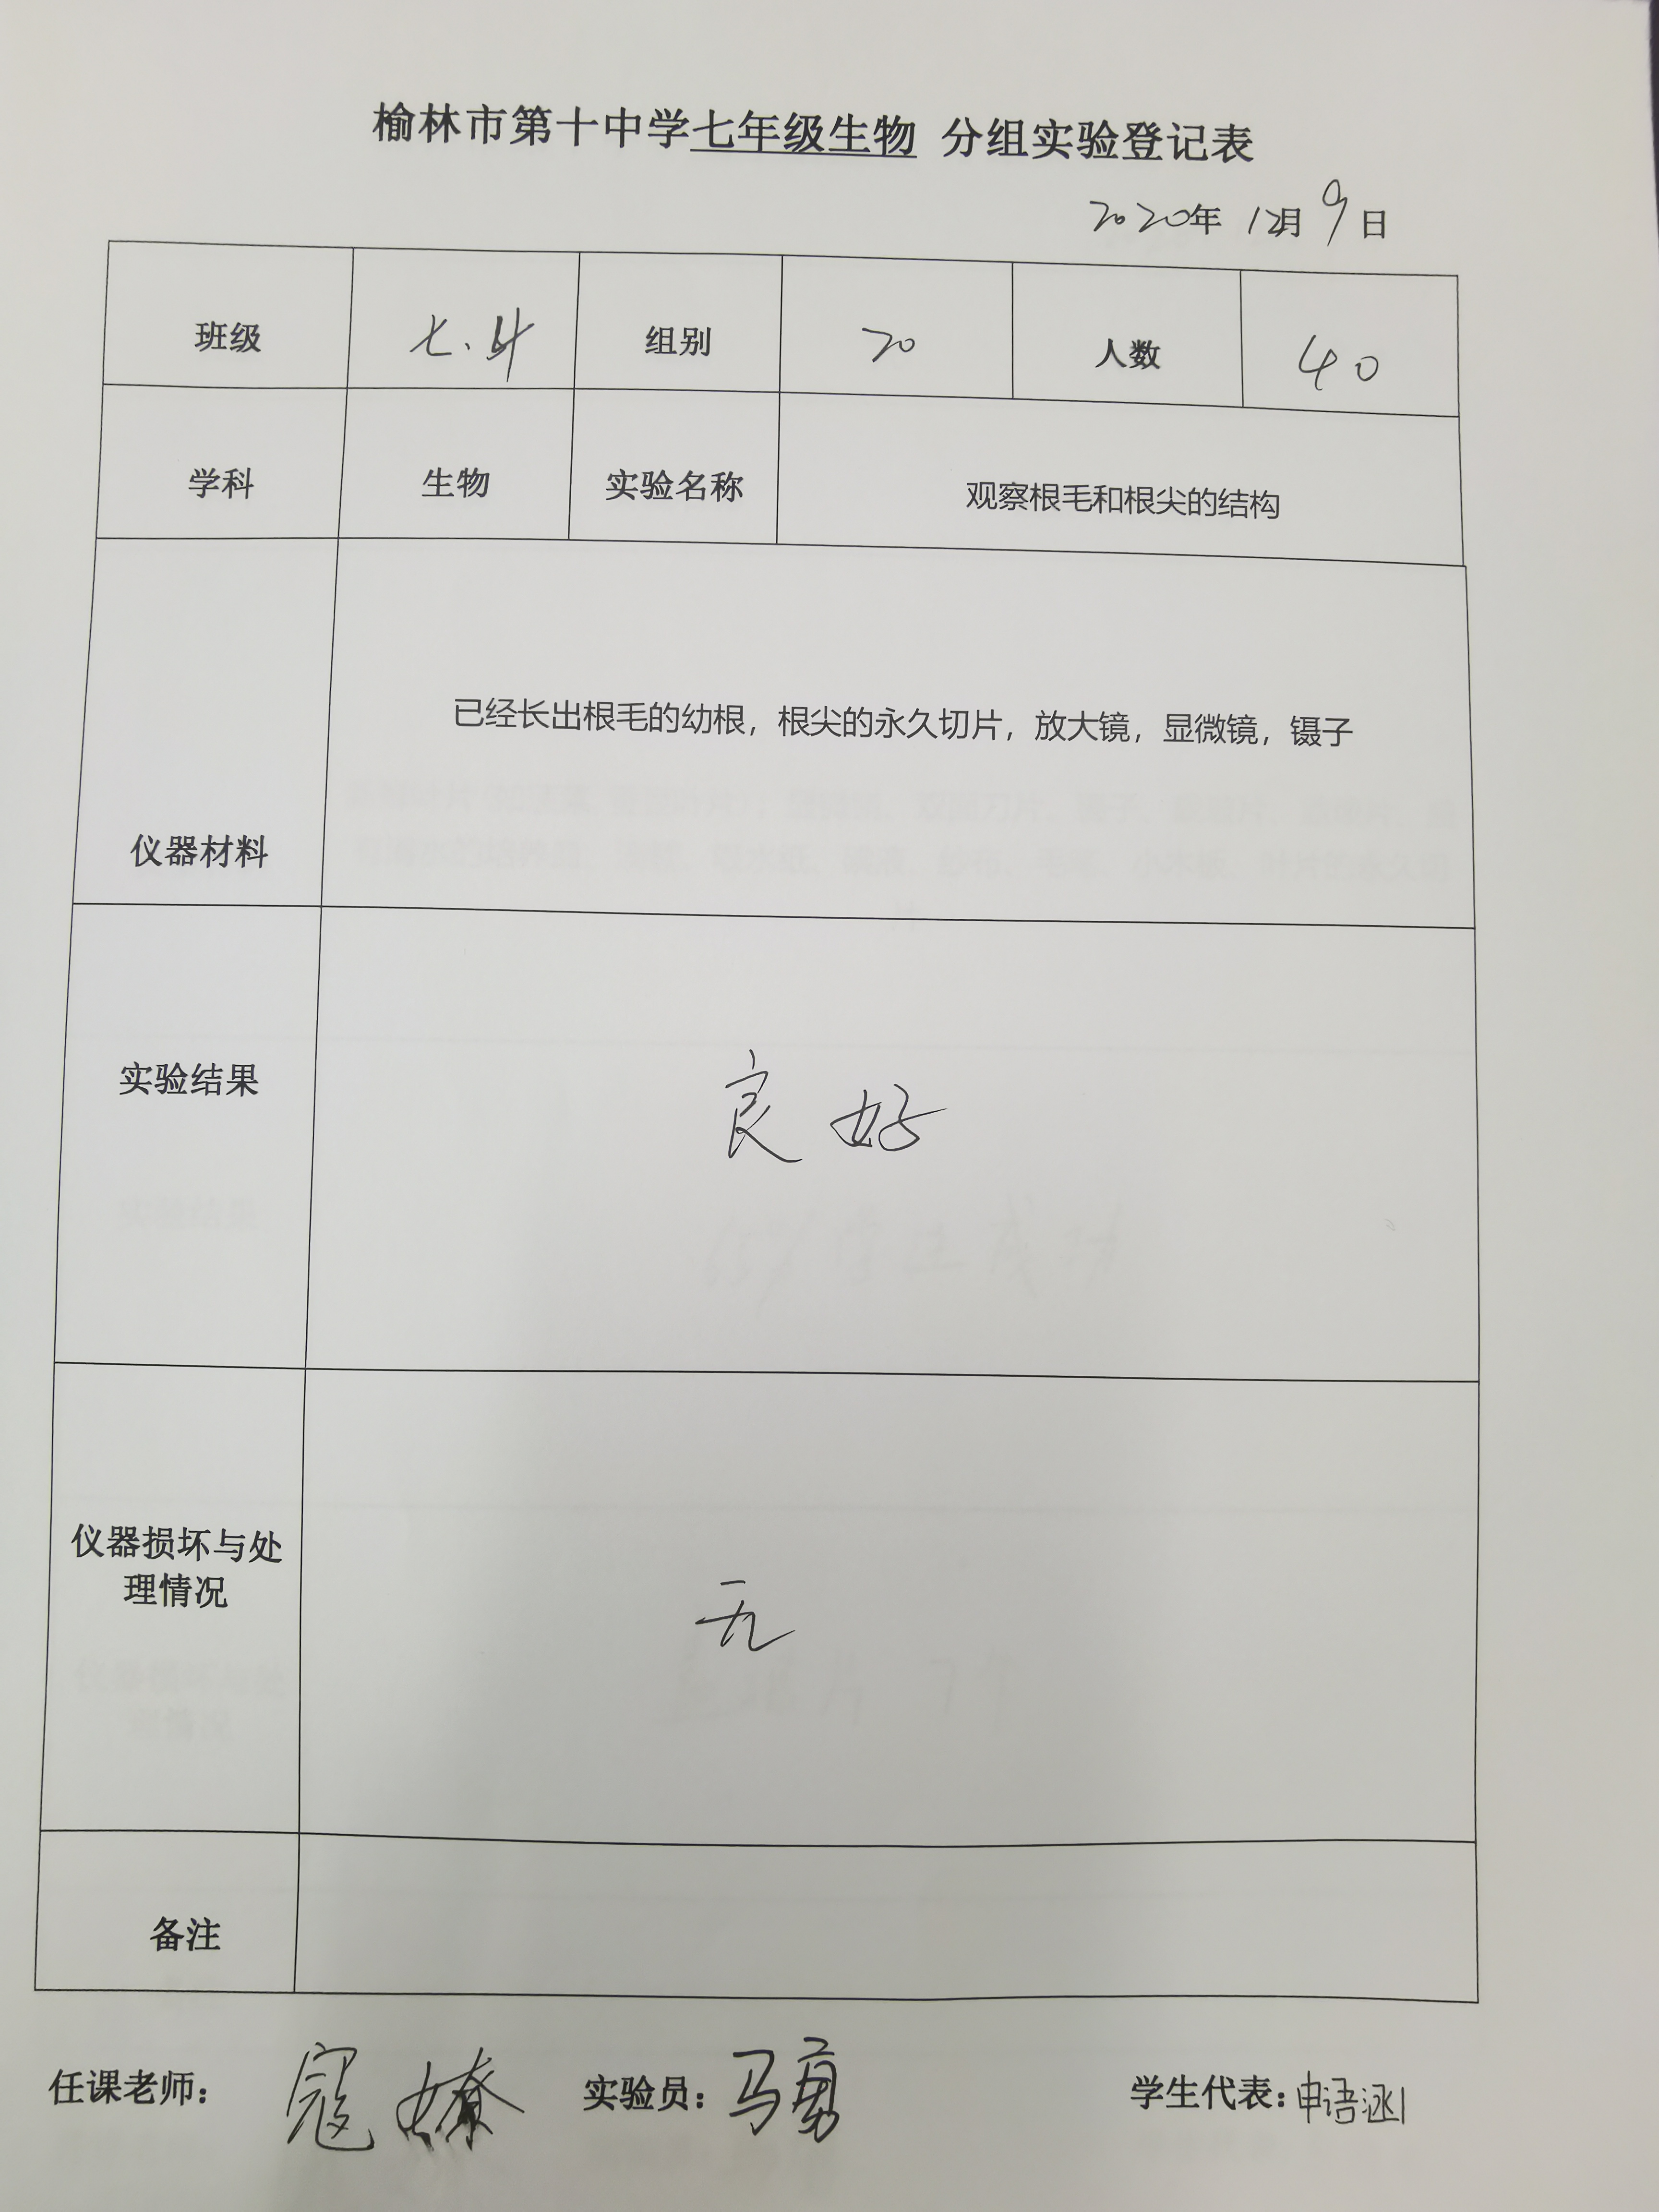 榆林市第十中学七年级生物 分组实验登记表
2020年 12月 9日
班级 七.4 组别 20 人数 40
学科 生物 实验名称 观察根毛和根尖的结构
已经长出根毛的幼根，根尖的永久切片，放大镜，显微镜，镊子
仪器材料
实验结果 良好
仪器损坏与处
理情况
无
备注
任课老师： 寇 实验员：马勇 学生代表：申语涵